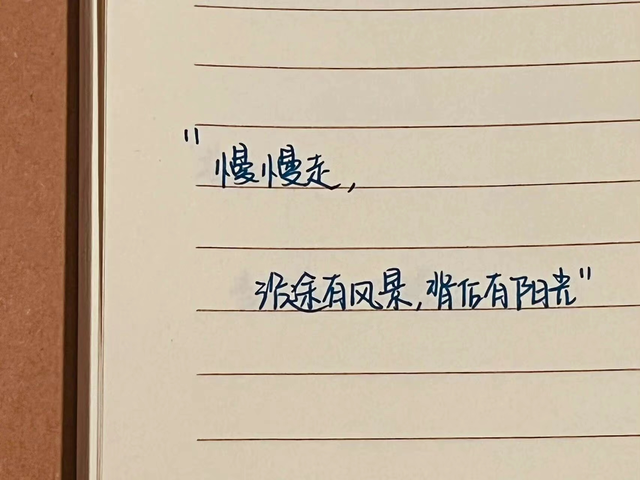 "慢慢走,
沿途有风景,背后有阳光"